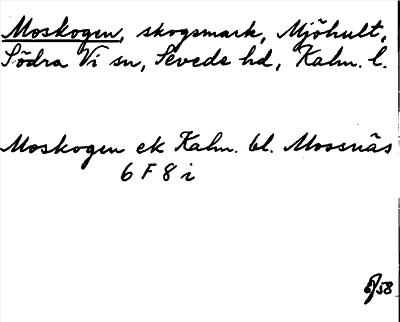 Moskogen, skogsmark, Mjöhult,
Södra Vi sn, Sevede hd, Kalm. l.
Moskogen ek Kalm. bl. Mossnäs
6 F 8 i
58